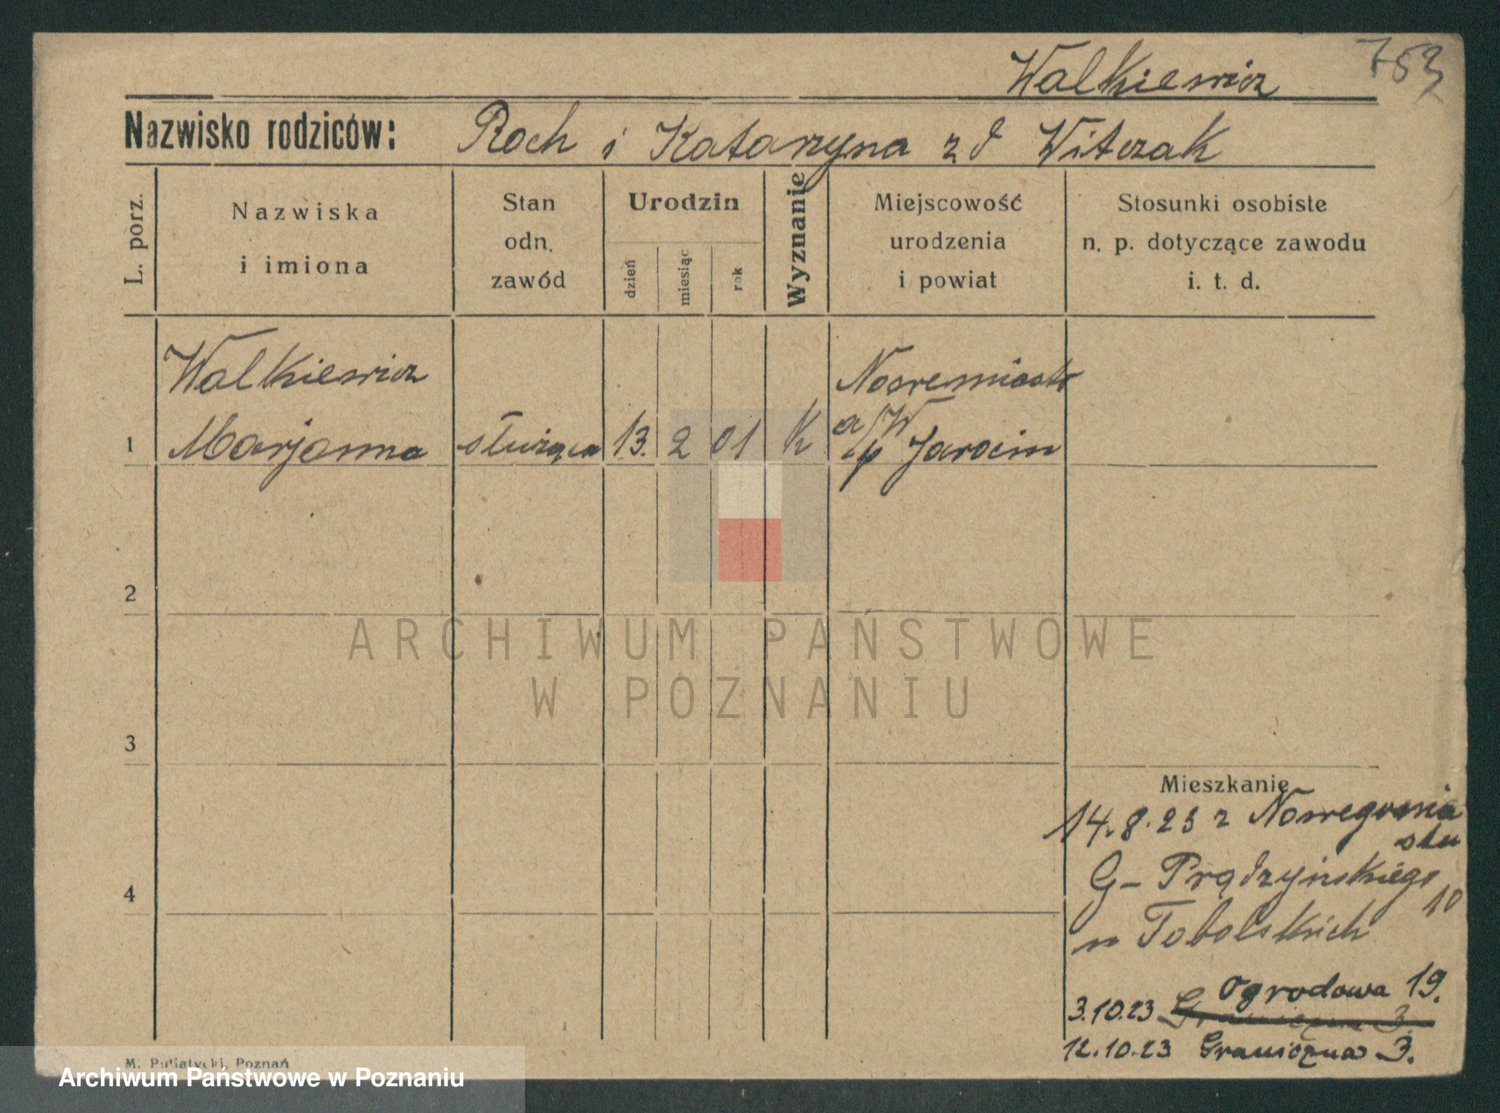 Walkiewicz 753
Nazwisko rodziców: Roch i Katarzyna z d Witczak
L. porz.
Nazwiska
i imiona
Stan
odn.
zawód
Urodzin
dzień
miesiąc
rok
Wyznanie
Miejscowość
urodzenia
i powiat
Stosunki osobiste
n. p. dotyczące zawodu
i. t. d.
Walkiewicz Nowemiasto
a/W
1 Marjanna służąca 13. 2 01 K /p Jarocin
2
ARCHIWUM PAŃSTWOWE
W POZNANIU
3
Mieszkanie
14.8.23 z Nowegomia
sta
4
G- Prądzyńskiego
10
u Tobolskich
Ogrodowa 19.
3.10.23 Graniczna 3.
12.10.23 Graniczna 3.
M. Putiatycki, Poznań
Archiwum Państwowe w Poznaniu